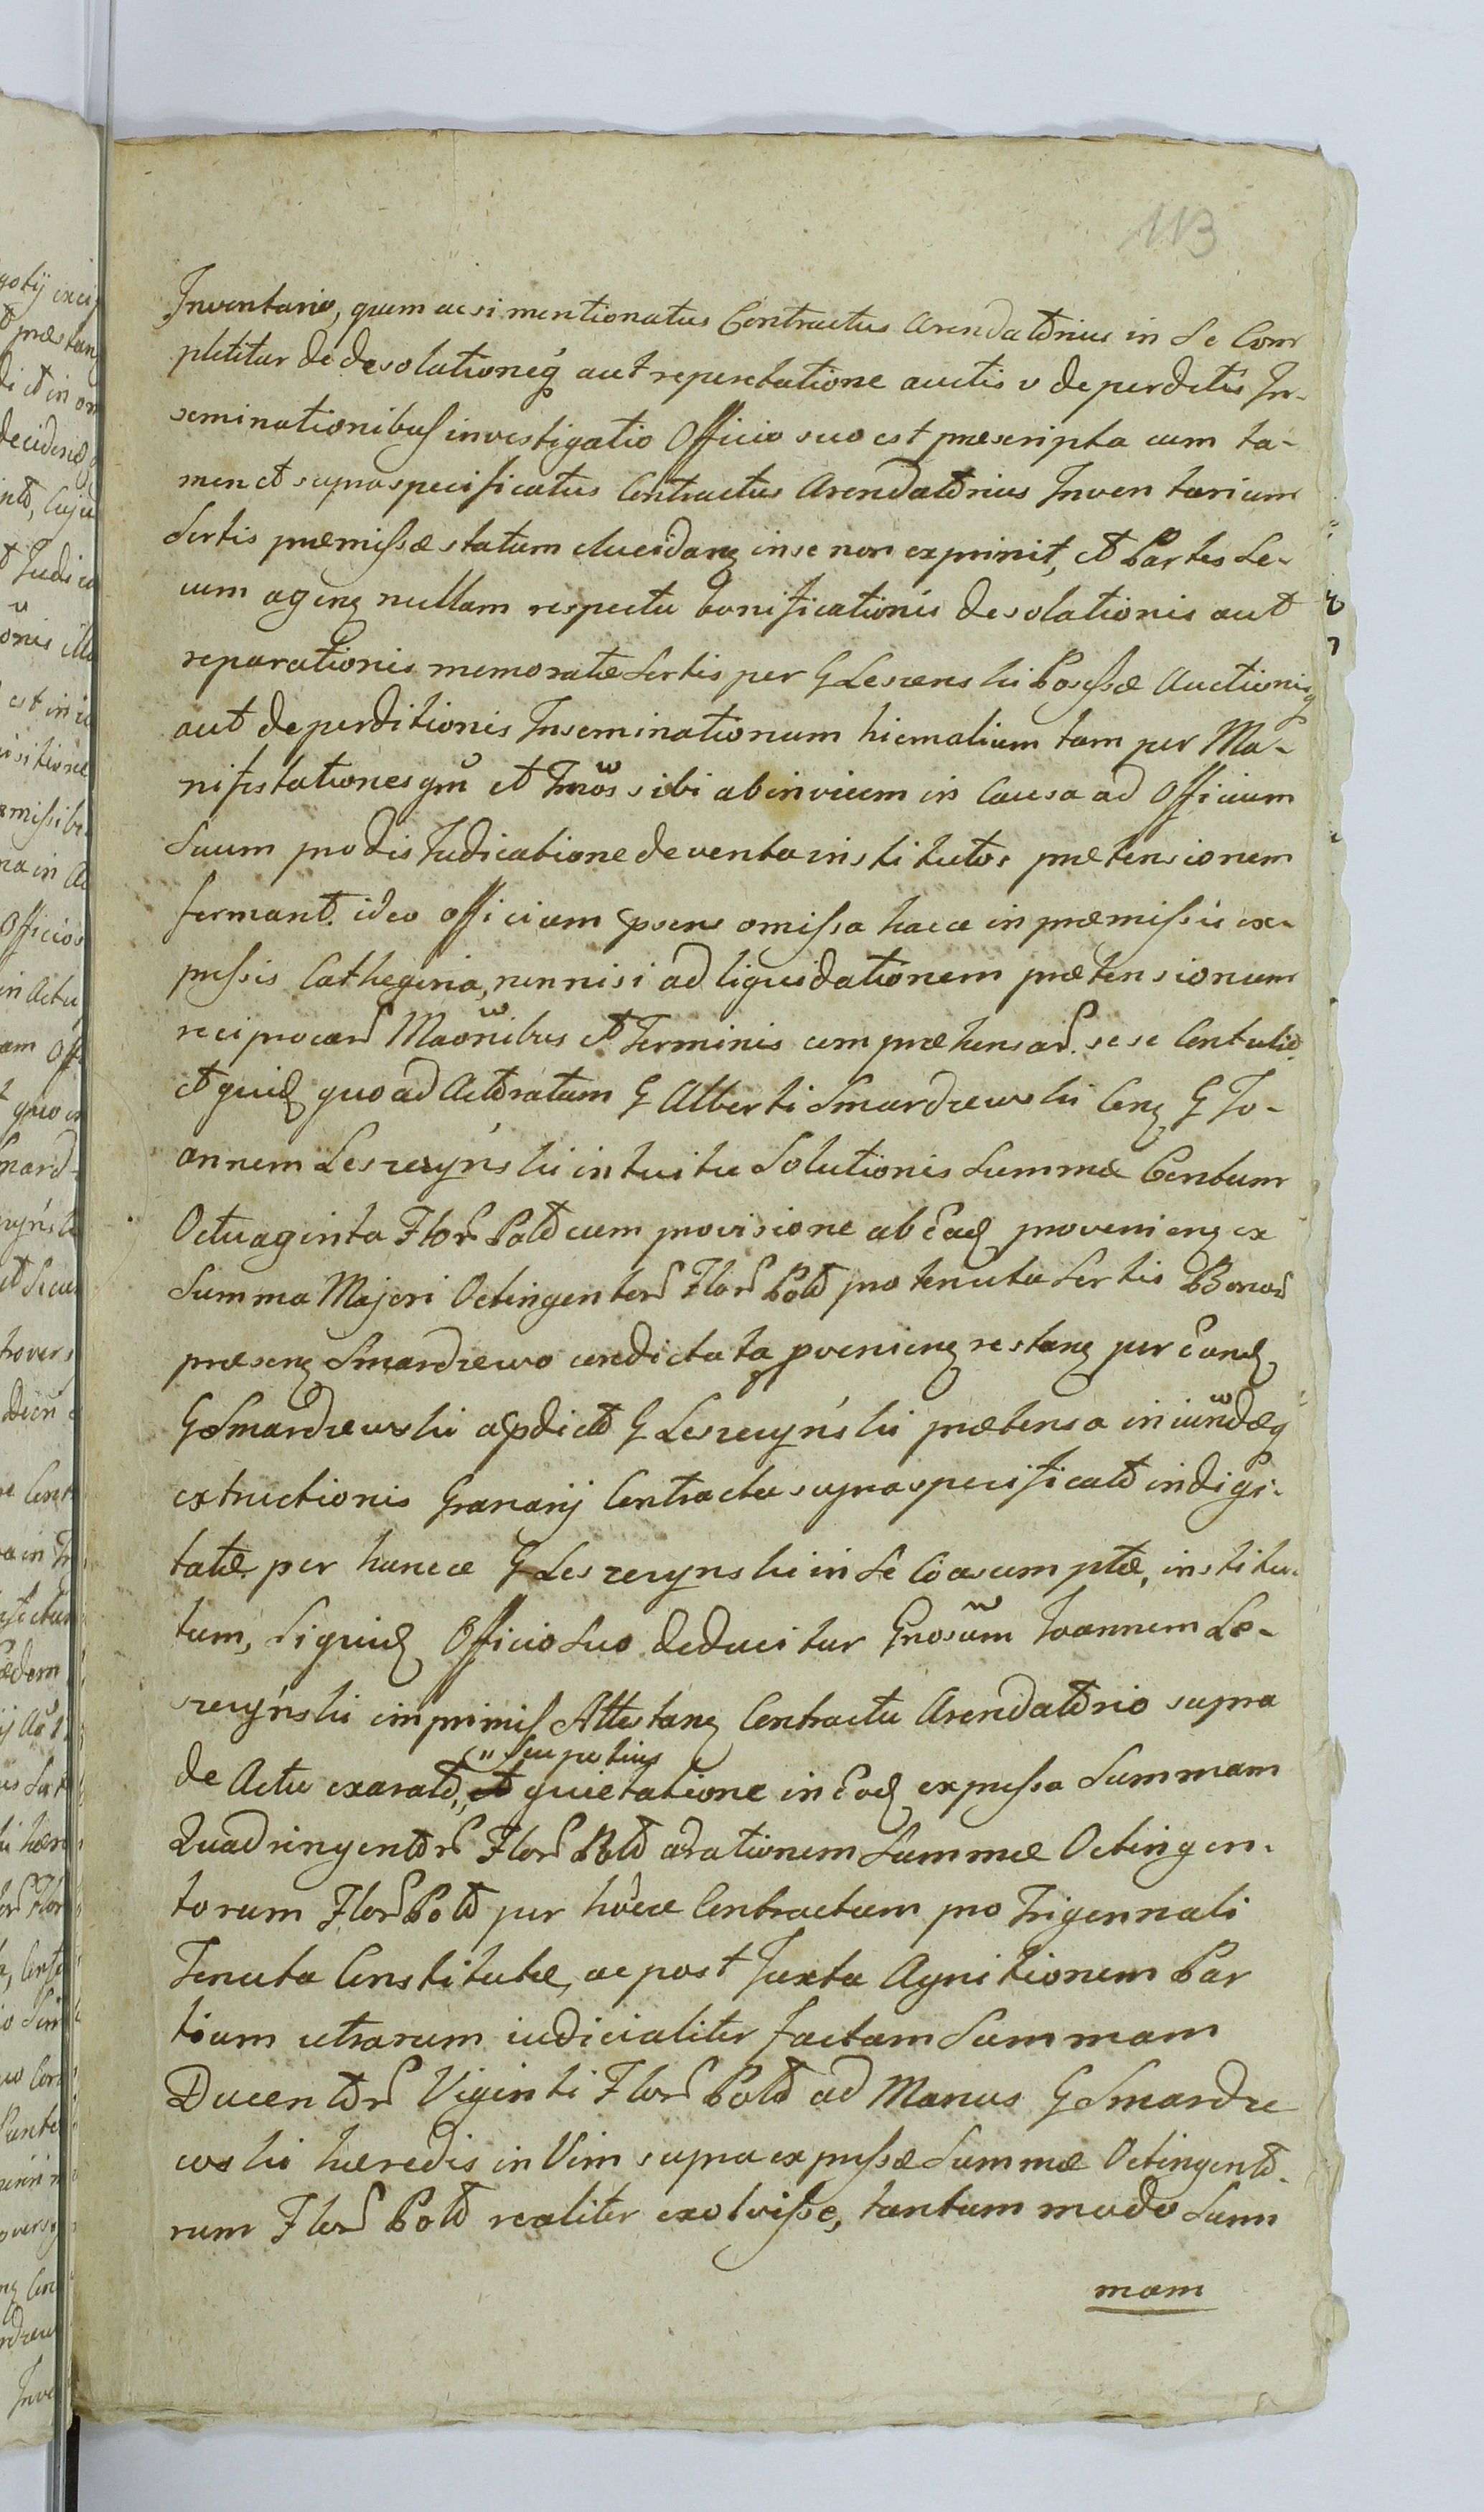 113
Inventario, quem acsi mentionatus Contractus Arendatorius in Se Com
plectitur de desolationeq₃ aut reparatione auctis v deperditis In-
seminationibus investigatio Officio suo est præscripta cum ta-
men et supraspecificatus Contractus Arendatorius Inventarium
Sortis præmissæ statum elucidanẹ in se non exprimit, et Partes Se-
cum agenẹ nullam respectu bonificationis desolationis aut
reparationis memoratæ Sortis per G Leszczenski Possessæ Auctionisq₃
aut deperditionis Inseminationum hiemalium tam per Ma-
nifestationes qm̃ et Tm̃os sibi abinvicem in Causa ad Officium
Suum pro disjudicatione deventa institutos prætensionem
formant. ideo officium pṡens omissa hacce in præmissis ex-
pressis Cathegoria, nonnisi ad liquidationem prætensionum
reciprocar Mãonibus et Terminis compræhensar. sese Contulit
et quid quoad Actoratum G Alberti Smardzewski Con G Jo-
annem Leszczyński intuitu Solutionis Summæ Centum
Octuaginta Flor Pold cum provisione ab ead provenien ex
Summa Majori Octingentor Flor Pold pro tenuta Sortis Bonor
præsen Smardzewo condictata pvenien restan per eund
G Smardzewski a pdicto G Leszczyński prætensa in iundæq
extructionis Granarij Contractu supraspecificato indigi-
tatæ per huncce G Leszczynski in Se Coasumptæ, institu-
tum, Siquid Officio Suo deducitur Gnosum Joannem Le-
szczyński imprimis Attestan Contractu Arendatorio supra
de Actu exarato, et quietatione in Eod expressa Summam
" seu potius
Quadringentor Flor Pold ad rationem Summæ Octingen-
torum Flor Pold per hocce Contractum pro Trigennali
Tenuta Constitutæ, ac post Juxta Agnitionem Par
tium utrarum iudicialiter factam Summam
Ducentor Viginti Flor Pold ad Manus G Smardze
wski hæredis in Vim supra expressæ Summæ Octingento-
rum Flor Pold realiter exolvisse, tantum modo Sum
mam